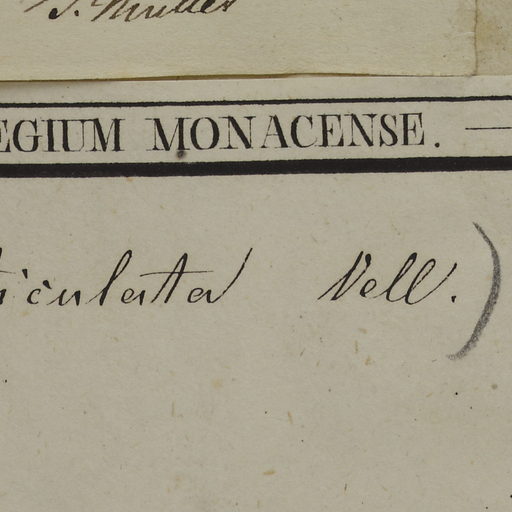 J. Müller
EGIUM MONACENSE. —
iculata Vell.)